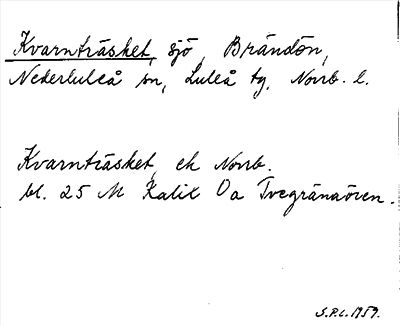 Kvarnträsket, sjö, Brändön,
Nederluleå sn, Luleå tg, Norrb. l.
Kvarnträsket, ek Norrb.
bl. 25 M Kalix Oa Tvegränaören.
S.P.C. 1959.